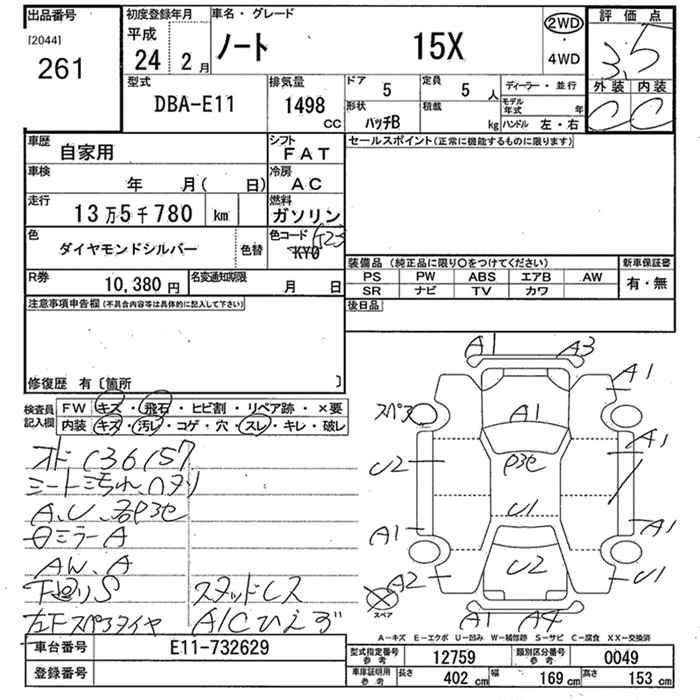 出品番号
[2044]
261
初度登録年月
平成
24 2 月
車名・グレード
ノート 15X
2WD
・
4WD
評価点
3.5
外装 内装
C C
型式
DBA-E11
排気量
1498
CC
ドア
5
定員
5 人
形状
ハッチB
積載
kg
ディーラー・並行
モデル年式 年
ハンドル 左・右
車歴
自家用
シフト
FAT
車検
年 月( 日)
冷房
AC
走行
13万5千780 km
燃料
ガソリン
色
ダイヤモンドシルバー
色替
色コード
KY0
K23
R券
10,380 円
名変通知期限
月 日
セールスポイント(正常に機能するものに限ります)
装備品 (純正品に限り〇をつけてください)
PS PW ABS エアB AW
SR ナビ TV カワ
新車保証書
有・無
後日品
注意事項申告欄(不具合内容等は具体的に記入して下さい)
修復歴 有〔箇所 〕
検査員記入欄
FW キズ・飛石・ヒビ割・リペア跡・×要
内装 キズ・汚レ・コゲ・穴・スレ・キレ・破レ
オド 136157
シート汚れ、ヘタリ
A、U、
ミラーA
AW、A
下廻りS スタッドレス
左F スペアタイヤ A/Cひえず
A1 A3
A1
スペア
A1
U2
A1
U1
A1
A1
U2
A2
U1
スペア
A1 A4
A−キズ E−エクボ U−凹み W−補修跡 S−サビ C−腐食 XX−交換済
車台番号 E11-732629
登録番号
型式指定番号 参考 12759 類別区分番号 参考 0049
車庫証明用 参考 長さ 402 cm 幅 169 cm 高さ 153 cm